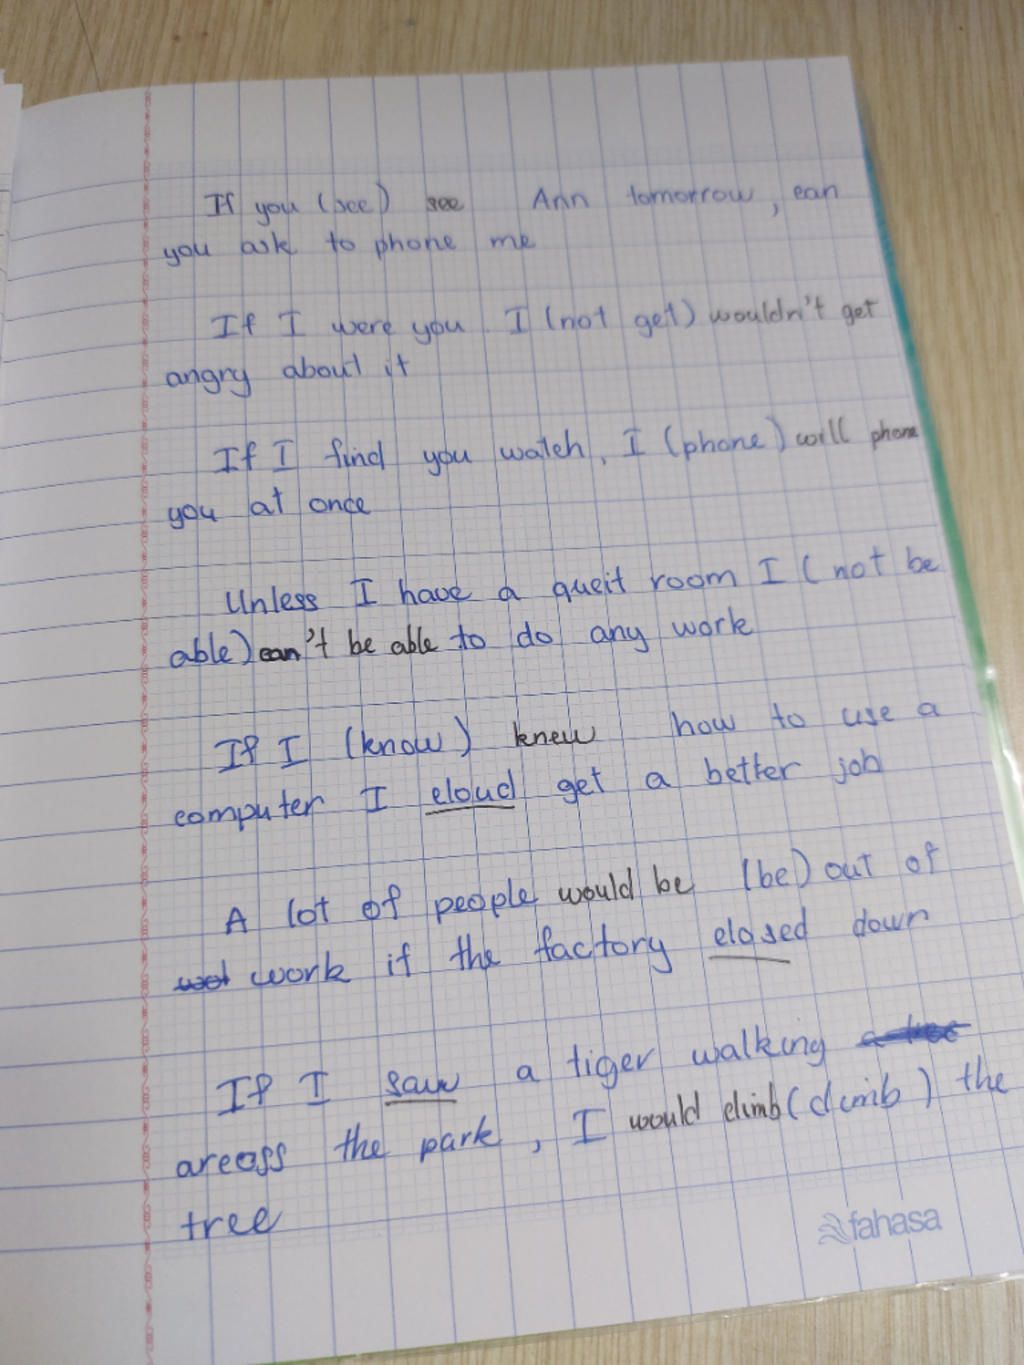 If you (see) see Ann tomorrow, can
you ask to phone me
If I were you I (not get) wouldn't get
angry about it
If I find you watch, I (phone) will phone
you at once
Unless I have a queit room I (not be
able) can't be able to do any work
If I (know) knew how to use a
computer I cloud get a better job
A lot of people would be (be) out of
work if the factory closed down
If I saw a tiger walking
arcoss the park, I would climb (climb) the
tree
fahasa